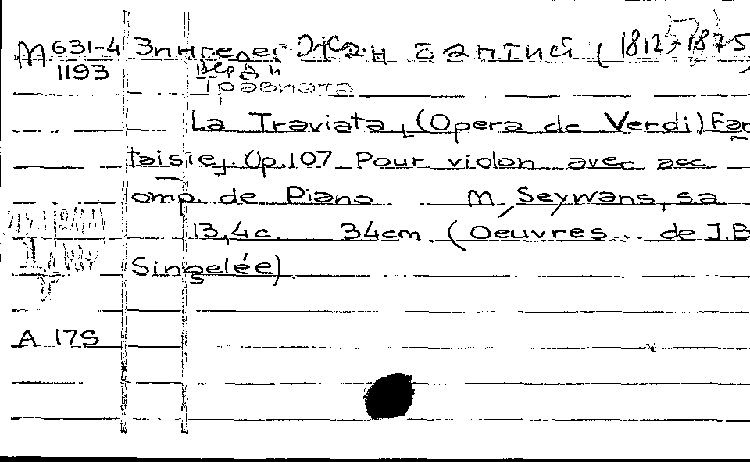 M 631-4 Зингелег Жан Батист (1812-1875)
1193 Верди
Травиата
La Traviata, (Opera de Verdi) Fan
taisie, Op.107 Pour violon avec acc
omp. de Piano M, Seywans, sa
13,4c. 34cm (Oeuvres de J.B
Singelée)
A 175